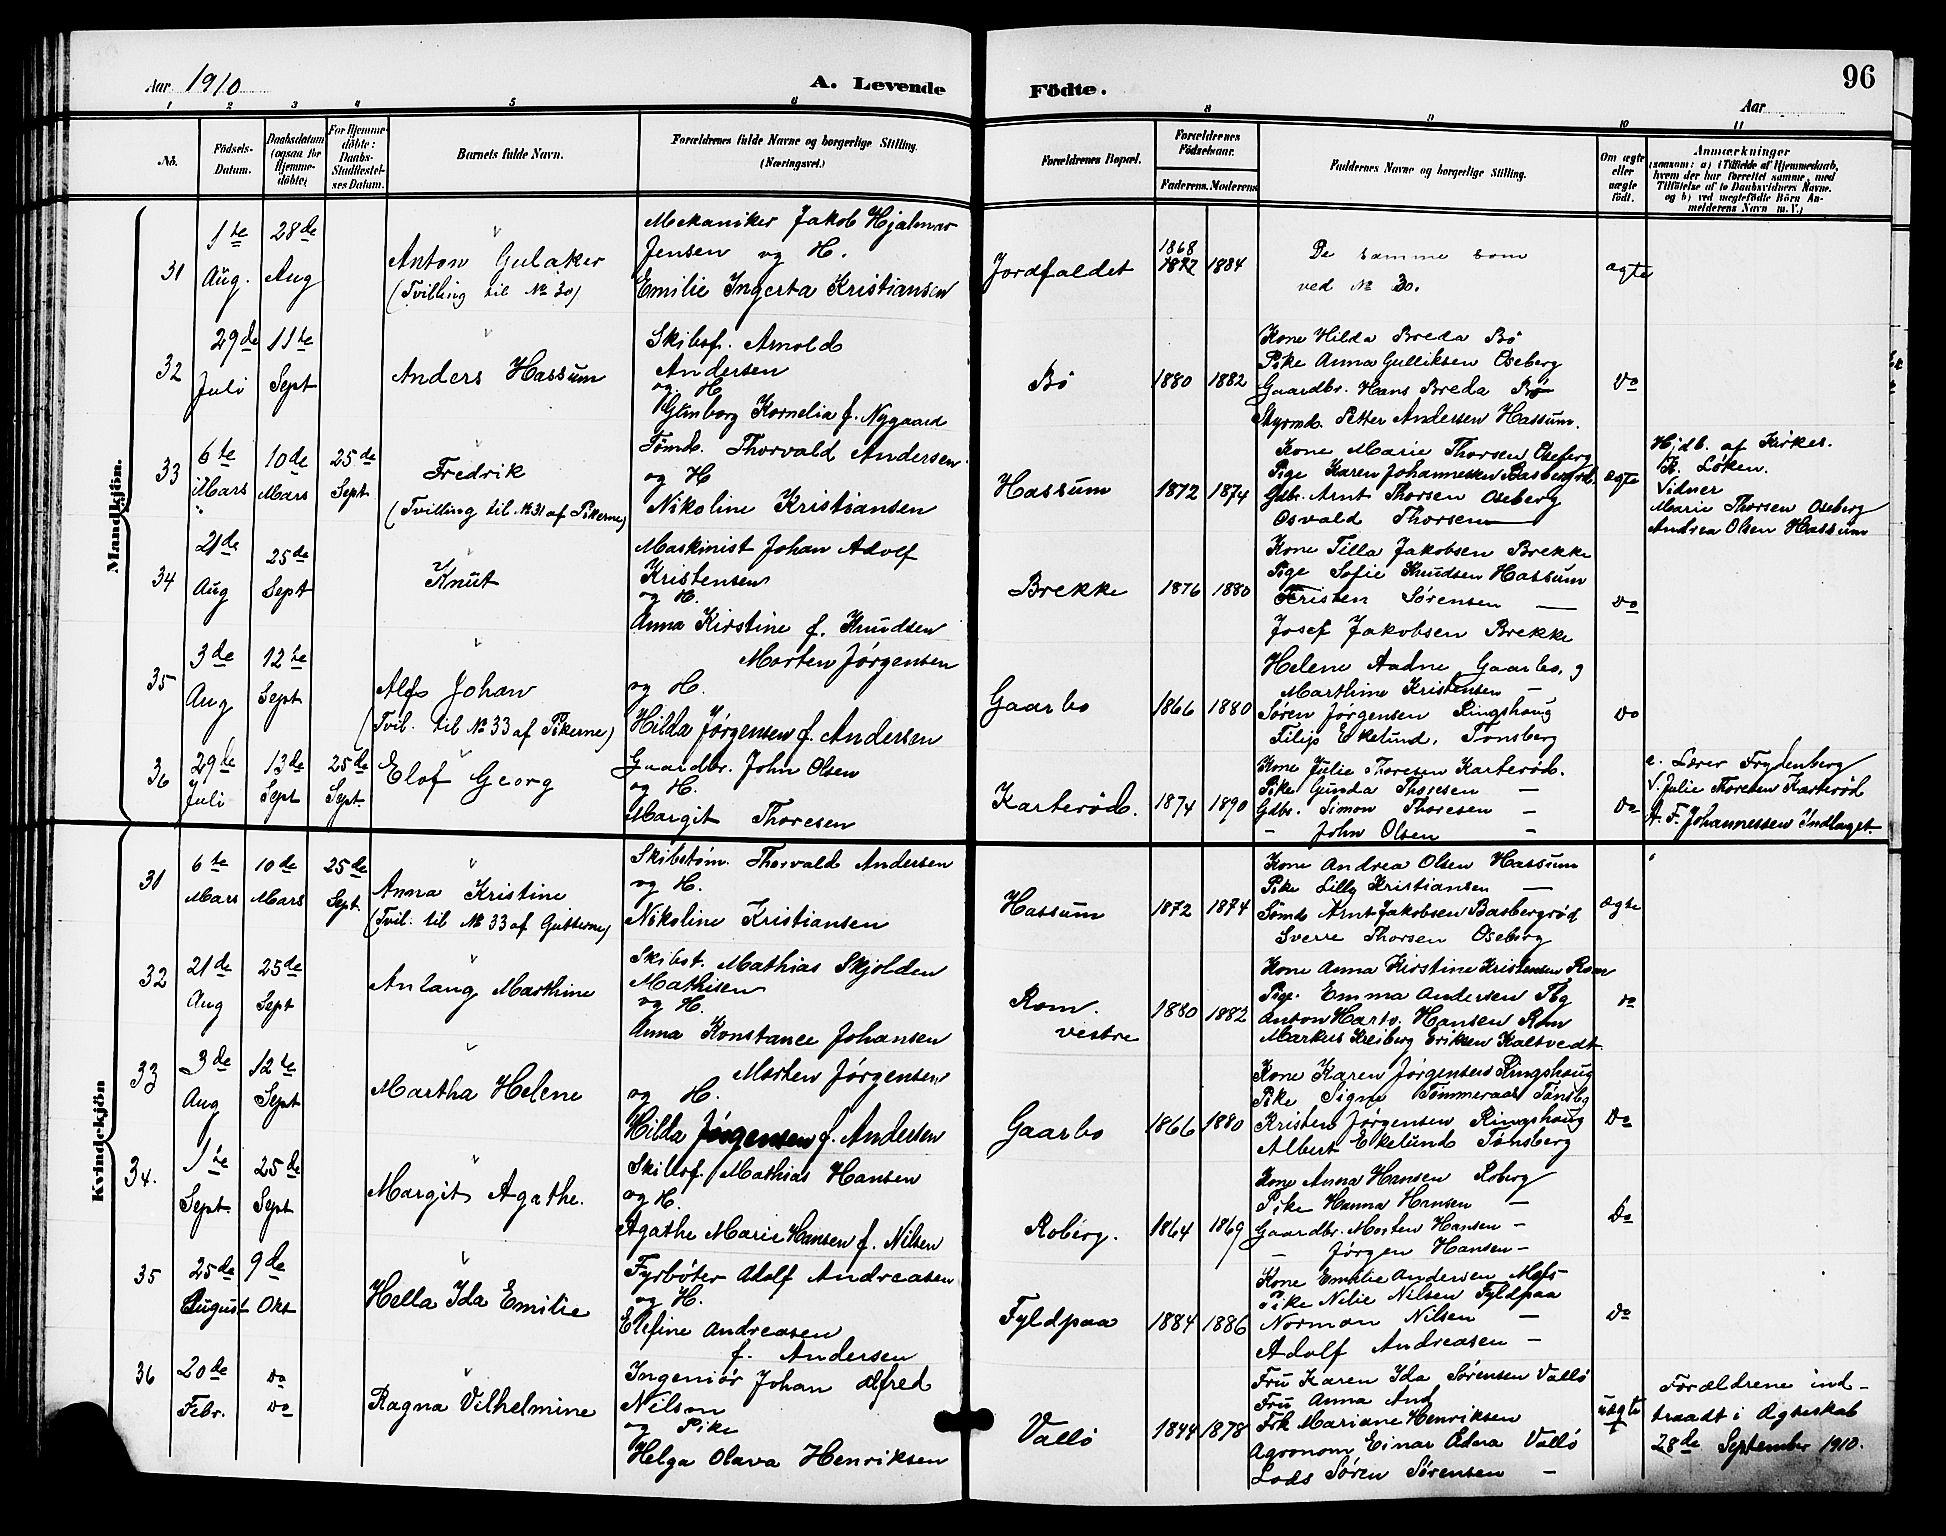 Aar 1910
A. Levende Födte.
96
Aar
1 2 3 4 5 6 8 9 10 11
No.
Födsels-
Datum.
Daabsdatum
(ogsaa for
Hjemme-
döbte)
For Hjemme-
döbte:
Daabs-
Stadfæstel-
ses Datum.
Barnets fulde Navn.
Forældrenes fulde Navne og borgerlige Stilling.
(Næringsvei.)
Forældrenes Bopæl.
Forældrenes
Födselsaar.
Faderens. Moderens.
Faddernes Navne og borgerlige Stilling.
Om ægte
eller
uægte
födt.
Anmærkninger
(saasom: a) i Tilfælde af Hjemmedaab,
hvem der har forrettet samme, med
Tilföielse af to Daabsvidners Navne,
og b) ved uægtefödte Börn An-
melderens Navn m. V.)
Mandkjön.
31
1te
Aug.
28de
Aug
Anton Gulaker
(Tvilling til No 30)
Mekaniker Jakob Hjalmar
Jensen og H.
Emilie Ingerta Kristiansen
Jordfaldet
1868
1872
1884
De samme som
ved No 30.
ægte
32
29de
Juli
11te
Sept
Anders Hassum
Skibsf. Arnold
Andersen
og H
Gunborg Kornelia f. Nygaard
Bö
1880
1882
Kone Hilda Breda Bö
Pike Anna Gulliksen Oseberg
Gaardbr. Hans Breda Bö
Styrmd. Petter Andersen Hassum.
Do
33
6te
Mars
10de
Mars
25de
Sept
Fredrik
(Tvilling til No 31 af Pikerne)
Tömd. Thorvald Andersen
og H
Nikoline Kristiansen
Hassum
1872
1874
Kone Marie Thorsen Oseberg
Pige Karen Johannessen Basbergröd
Gdbr. Arnt Thorsen Oseberg
Osvald Thorsen —
ægte
Hjdb. af Kirkes.
K. Löken.
Vidner
Marie Thorsen Oseberg
Andrea Olsen Hassum
34
21de
Aug
25de
Sept
Knut
Maskinist Johan Adolf
Kristensen
og H.
Anna Kirstine f. Knudsen
Brekke
1876
1880
Kone Tilla Jakobsen Brekke
Pige Sofie Knudsen Hassum
Kristen Sörensen —
Josef Jakobsen Brekke
Do
35
3de
Aug
12te
Sept
Alf Johan
(Tvil. til No 33 af Pikerne)
Morten Jörgensen
og H.
Hilda Jörgensen f. Andersen
Gaarbo
1866
1880
Helene Aadne Gaarbo.
Marthine Kristensen —
Sören Jörgensen Ringshoug
Filip Ekelund. Tönsberg
Do
36
29de
Juli
13de
Sept
25de
Sept.
Elof Georg
Gaardbr. John Olsen
og H.
Margit Thoresen
Karteröd.
1874
1890
Kone Julie Thoresen Karteröd.
Pike Gunda Thoresen —
Gdbr. Simon Thoresen —
- John Olsen -
Do
Lærer Frydenberg
V. Julie Thoresen Karteröd
A. F. Johannessen Indlaget.
Kvindekjön
31
6te
Mars
10de
Mars
25de
Sept
Anna Kristine
(Tvil. til No 33 af Gutterne)
Skibstöm. Thorvald Andersen
og H.
Nikoline Kristiansen
Hassum
1872
1874
Kone Andrea Olsen Hassum
Pike Lilly Kristiansen —
Sömd Arnt Jakobsen Basbergröd
Sverre Thorsen Oseberg
ægte
32
21de
Aug
25de
Sept
Anlaug Marthine
Skibst. Mathias Skjolden
Mathisen
og H.
Anna Konstance Johansen
Rom.
vestre
1880
1882
Kone Anna Kirstine Kristensen Rom
Pige. Emma Andersen Tbg
Anton Hartv. Hansen Rom
Markus Kreiberg Eriksen Kaltvedt
Do
33
3de
Aug
12te
Sept
Martha Helene
Morten Jörgensen
og H.
Hilda Jörgensen f. Andersen
Gaarbo
1866
1880
Kone Karen Jörgensen Ringshoug
Pike Signe Tömmeraas Tönsbg
Kristen Jörgensen Ringshoug
Albert Ekelund Tönsberg
Do
34.
1te
Sept.
25de
Sept
Margit Agathe.
Skibsf. Mathias Hansen
og H.
Agathe Marie Hansen f. Nilsen
Roberg.
1864
1869
Kone Anna Hansen Roberg
Pike Hanna Hansen —
Gaardbr. Morten Hansen -
- Jörgen Hansen -
Do
35
25de
August
9de
Okt
Hella Ida Emilie
Fyrböter Adolf Andreasen
og H.
Elefine Andreasen
f. Andersen
Fyldpaa
1884
1886
Kone Emilie Andersen
Pike Nilie Nilsen Fyldpaa
Norman Nilsen —
Adolf Andreasen -
Do
36
20de
Febr.
Do
Do
Ragna Vilhelmine
Ingeniör Johan Alfred
Nilson
og Pike
Helga Olava Henriksen
Vallö
1844
1878
Fru Karen Ida Sörensen Vallö
Fru Anna Aug
Frk Mariane Henriksen
Agronom Einar Vallö
Lods Sören Sörensen -
uægte
Forældrene ind-
traadt i Ægteskab
28de September 1910.